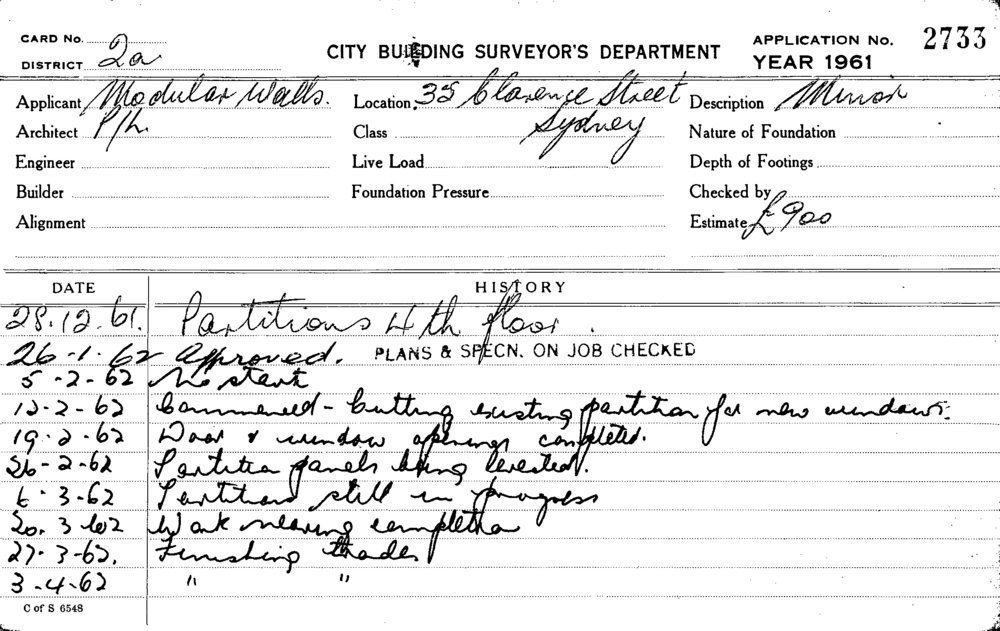 CARD No.
DISTRICT 2a
CITY BUILDING SURVEYOR'S DEPARTMENT
APPLICATION No. 2733
YEAR 1961
Applicant Modular Walls. Location 35 Clarence Street Description Minor
Architect P/L. Class Sydney Nature of Foundation
Engineer Live Load Depth of Footings
Builder Foundation Pressure Checked by
Alignment Estimate £900
DATE HISTORY
28.12.61. Partitions 4th floor.
26-1-62 Approved. PLANS & SPECN. ON JOB CHECKED
5-2-62 No start
12-2-62 Commenced - Cutting existing partition for new windows.
19-2-62 Door & window openings completed.
26-2-62 Partition panels being erected.
6-3-62 Partitions still in progress
20.3.62 Work nearing completion
27-3-62. Finishing trades
3-4-62 " "
C of S 6548